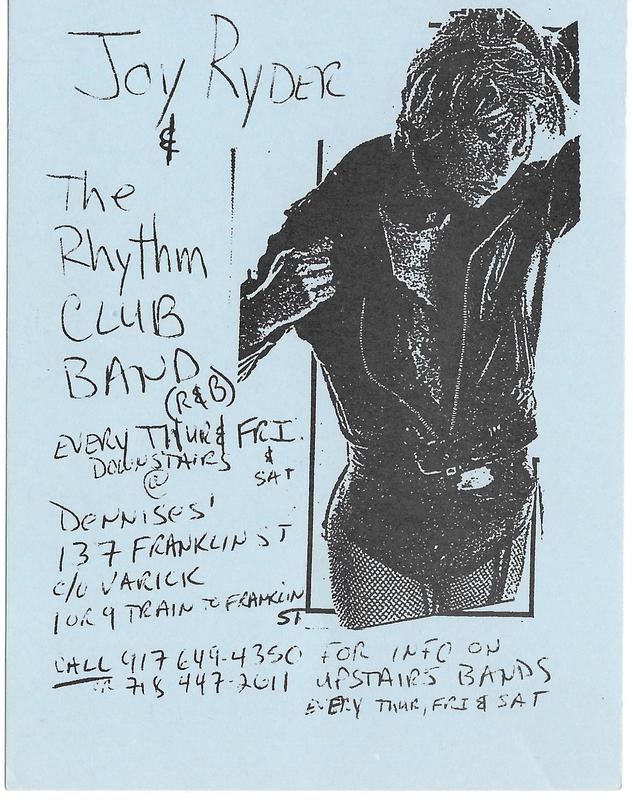 Joy Ryder
&
The
Rhythm
CLUB
BAND
(R&B)
EVERY THUR & FRI.
& SAT
DOWNSTAIRS
@
DENNISES'
137 FRANKLIN ST
c/o VARICK
1 OR 9 TRAIN TO FRANKLIN
ST
CALL 917 649-4350 FOR INFO ON
OR 718 447-2011 UPSTAIRS BANDS
EVERY THUR, FRI & SAT